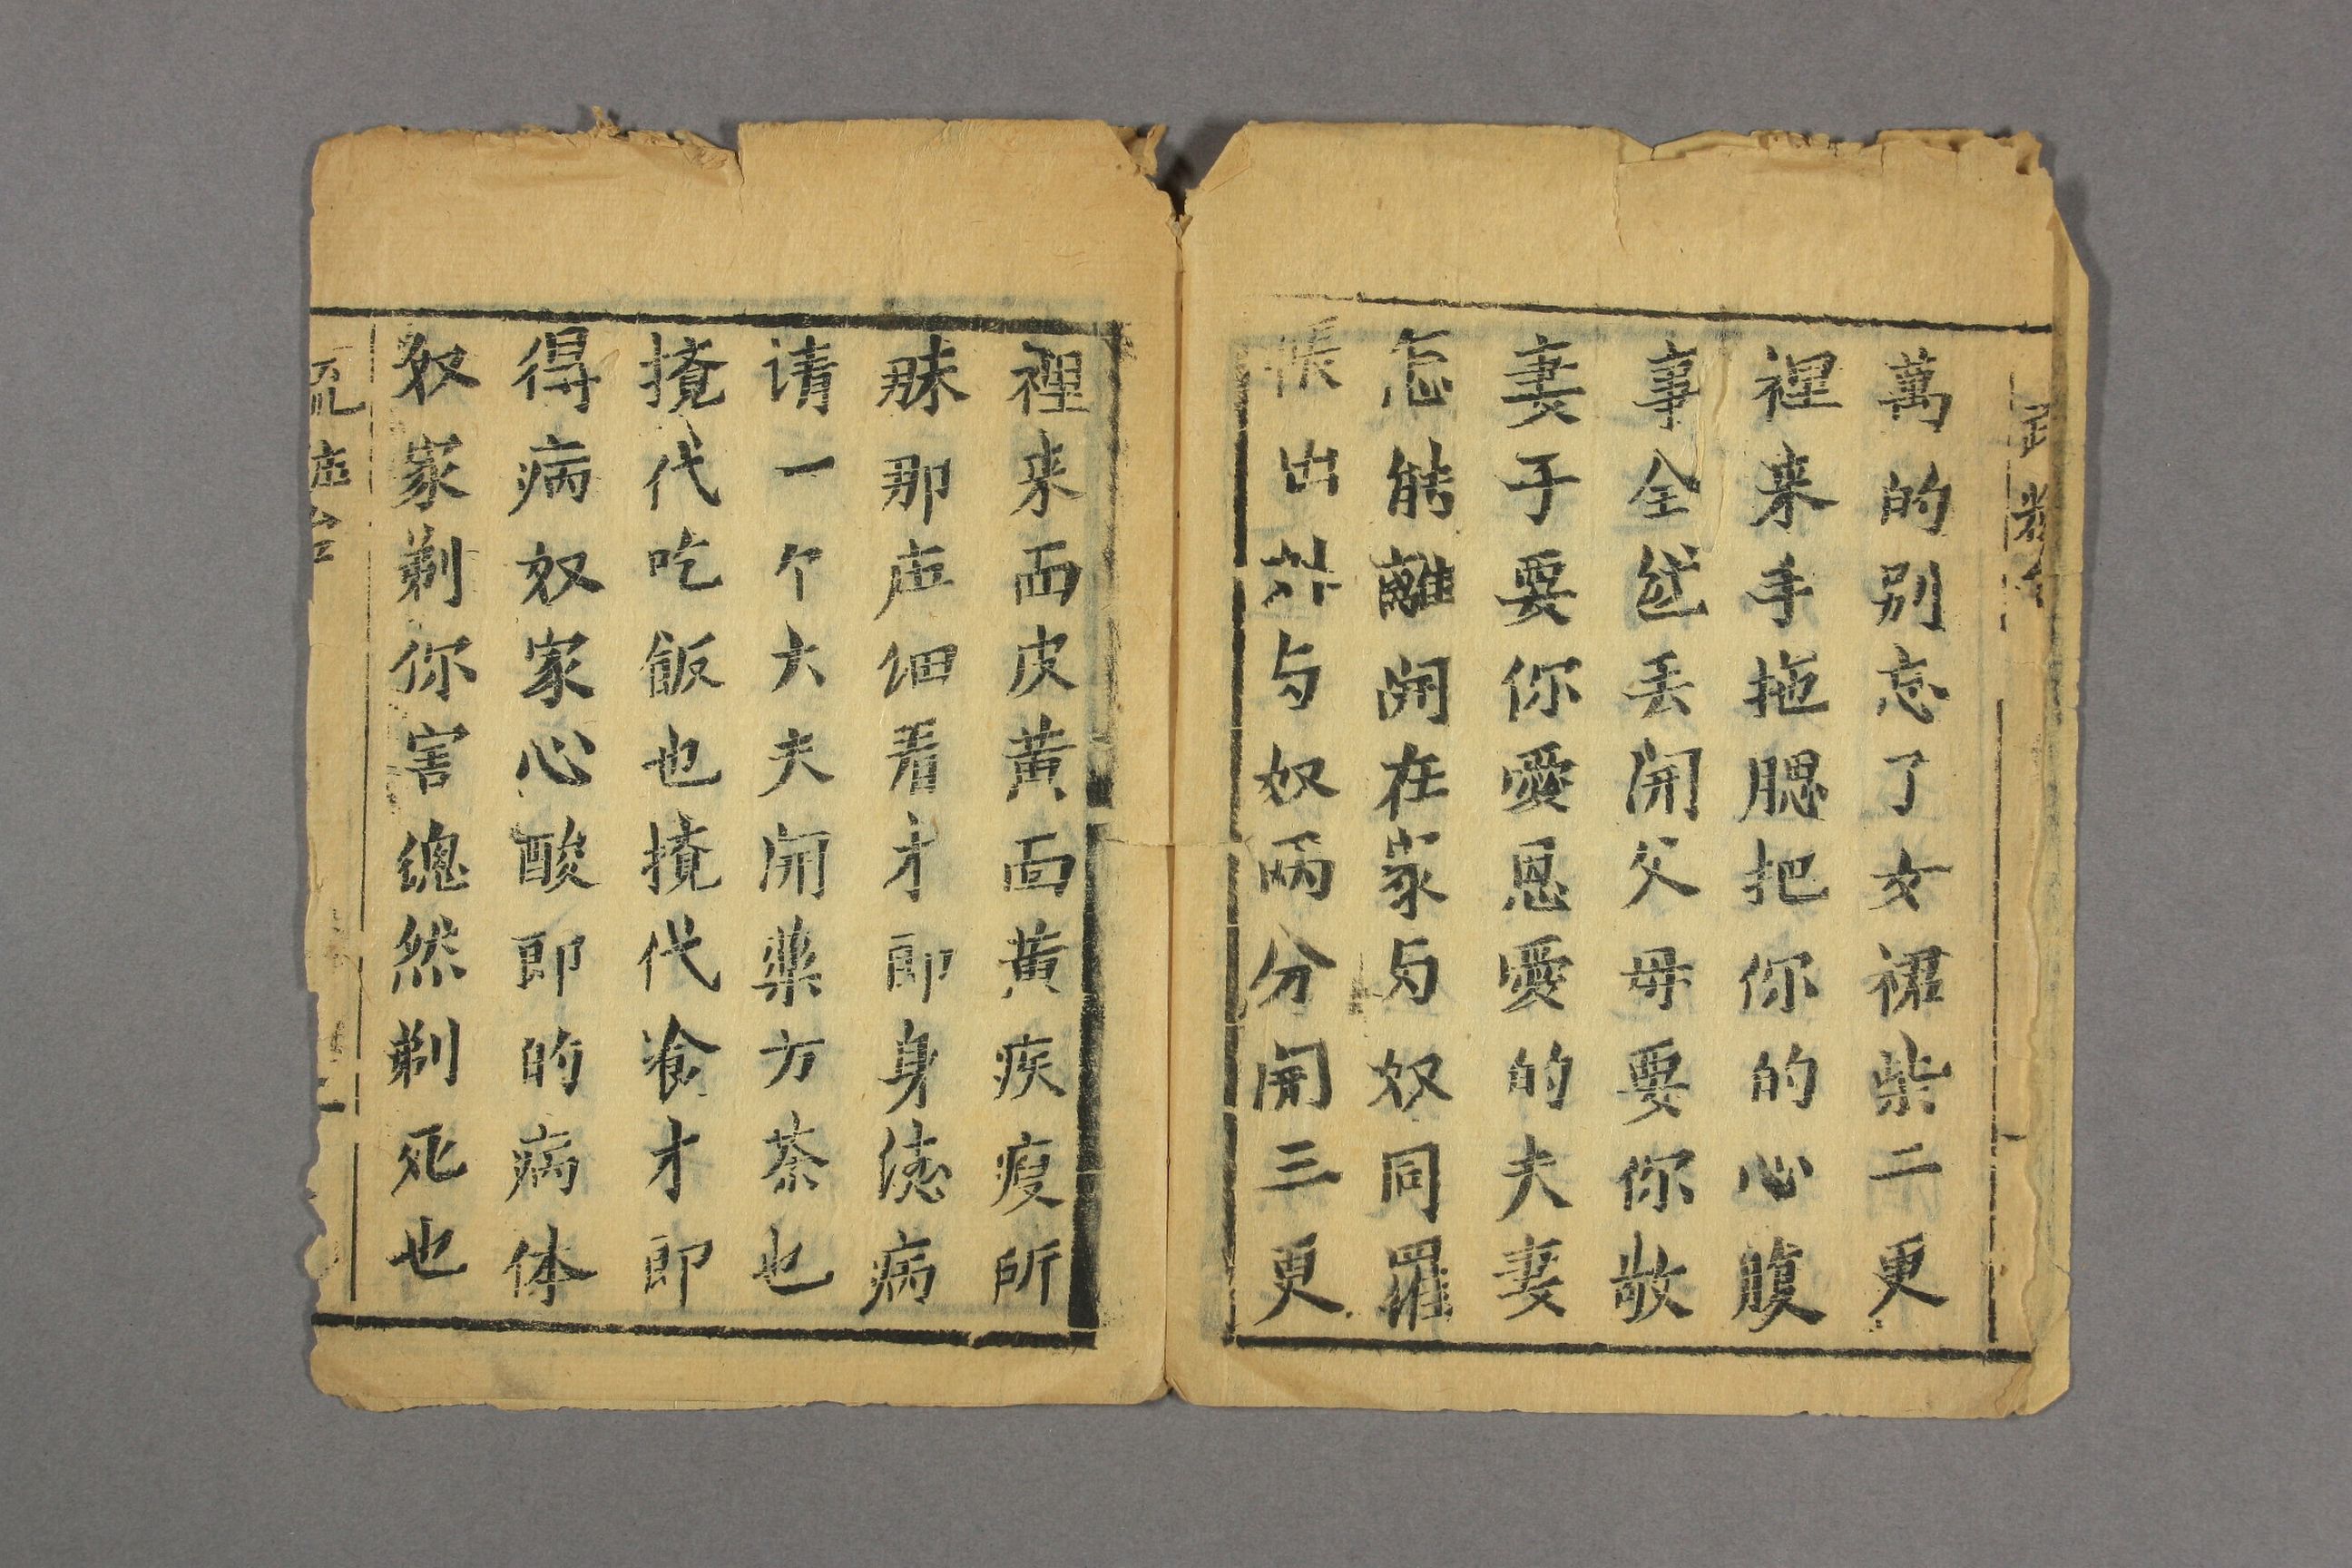 萬的别忘了女裙柴二更
裡来手拖腮把你的心腹
事全丢開父母要你敬
妻于要你愛恩愛的夫妻
怎能離開在家与奴同羅
帳出外与奴兩分開三更
裡来面皮黄面黄疾瘦所
眛那声细看才郎身染病
请一个大夫開藥方茶也
攬代吃飯也攬代飡才郎
得病奴家心酸郎的病体
奴家剃你害總然剃死也